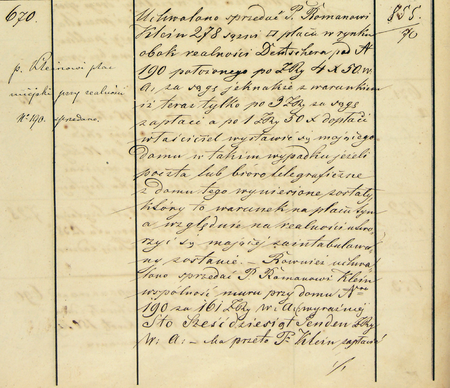 670.
p. Kleinowi plac
miejski przy realności
N° 190. sprzedano.
855.
90
Uchwalono sprzedać P. Romanowi
Klein 278 sążni □ placu w rynku
obok realności Deutschera pod N°
190 położonego po ZRy 4 x 50. w.
a. za sągę jednakże z warunkiem
iż teraz tylko po 3 ZRy za sągę
zapłaci a po 1 ZRy 50 x dopłaci
właściciel wystawić się mającego
domu w takim wypadku jeżeli
poczta lub bióro telegraficzne
z domu tego wyniesione zostały
który to warunek na placu tym
a względnie na realności utwo-
rzyć się mającej zaintabulowa-
ny zostanie. — Również uchwa-
lono sprzedać P. Romanowi Klein
wspólność muru przy domu Nro
190 za 161 ZRy w. a. wyraźniej
Sto Sześćdziesiąt Jeden ZRy
W. A. — Ma przeto P. Klein zapłacić